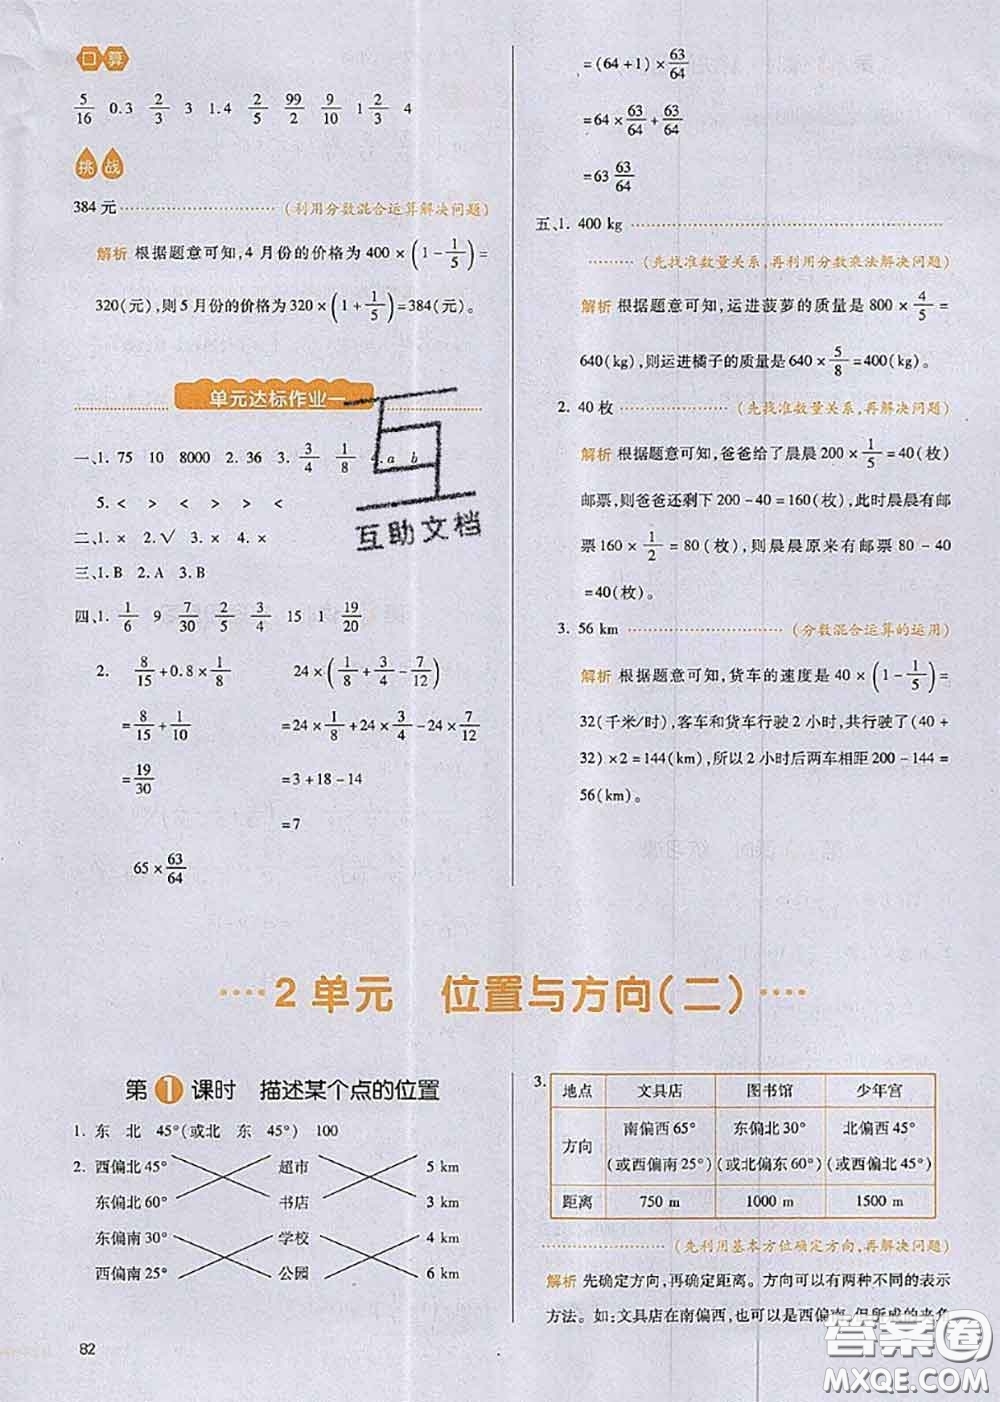 口算
5/16 0.3 2/3 3 1.4 2/5 99/2 9/10 1 2/3 4
挑战
384 元 (利用分数混合运算解决问题)
解析 根据题意可知,4 月份的价格为 400 × (1 - 1/5) =
320(元),则 5 月份的价格为 320 × (1 + 1/5) = 384(元)。
单元达标作业一
一、1. 75 10 8000 2. 36 3. 3/4 1/8 4. a b
5. < > < > > <
二、1. × 2. √ 3. × 4. ×
三、1. B 2. A 3. B
四、1. 1/6 9 7/30 2/5 3/4 15 1 19/20
2. 8/15 + 0.8 × 1/8 24 × (1/8 + 3/4 - 7/12)
= 8/15 + 1/10 = 24 × 1/8 + 24 × 3/4 - 24 × 7/12
= 19/30 = 3 + 18 - 14
= 7
65 × 63/64
= (64 + 1) × 63/64
= 64 × 63/64 + 63/64
= 63 63/64
五、1. 400 kg
(先找准数量关系,再利用分数乘法解决问题)
解析 根据题意可知,运进菠萝的质量是 800 × 4/5 =
640(kg),则运进橘子的质量是 640 × 5/8 = 400(kg)。
2. 40 枚 (先找准数量关系,再解决问题)
解析 根据题意可知,爸爸给了晨晨 200 × 1/5 = 40(枚)
邮票,则爸爸还剩下 200 - 40 = 160(枚),此时晨晨有邮
票 160 × 1/2 = 80(枚),则晨晨原来有邮票 80 - 40
= 40(枚)。
3. 56 km (分数混合运算的运用)
解析 根据题意可知,货车的速度是 40 × (1 - 1/5) =
32(千米/时),客车和货车行驶 2 小时,共行驶了(40 +
32) × 2 = 144(km),所以 2 小时后两车相距 200 - 144 =
56(km)。
互助文档
2 单元 位置与方向(二)
第 1 课时 描述某个点的位置
1. 东 北 45°(或北 东 45°) 100
2. 西偏北 45° 超市 5 km
东偏北 60° 书店 3 km
东偏南 30° 学校 4 km
西偏南 25° 公园 6 km
3. 地点 文具店 图书馆 少年宫
方向 南偏西 65° 东偏北 30° 北偏西 45°
(或西偏南 25°) (或北偏东 60°) (或西偏北 45°)
距离 750 m 1000 m 1500 m
(先利用基本方位确定方向,再解决问题)
解析 先确定方向,再确定距离。方向可以有两种不同的表示
方法。如:文具店在南偏西,也可以是西偏南,但所成的夹角
82
答案圈
MXQE.COM